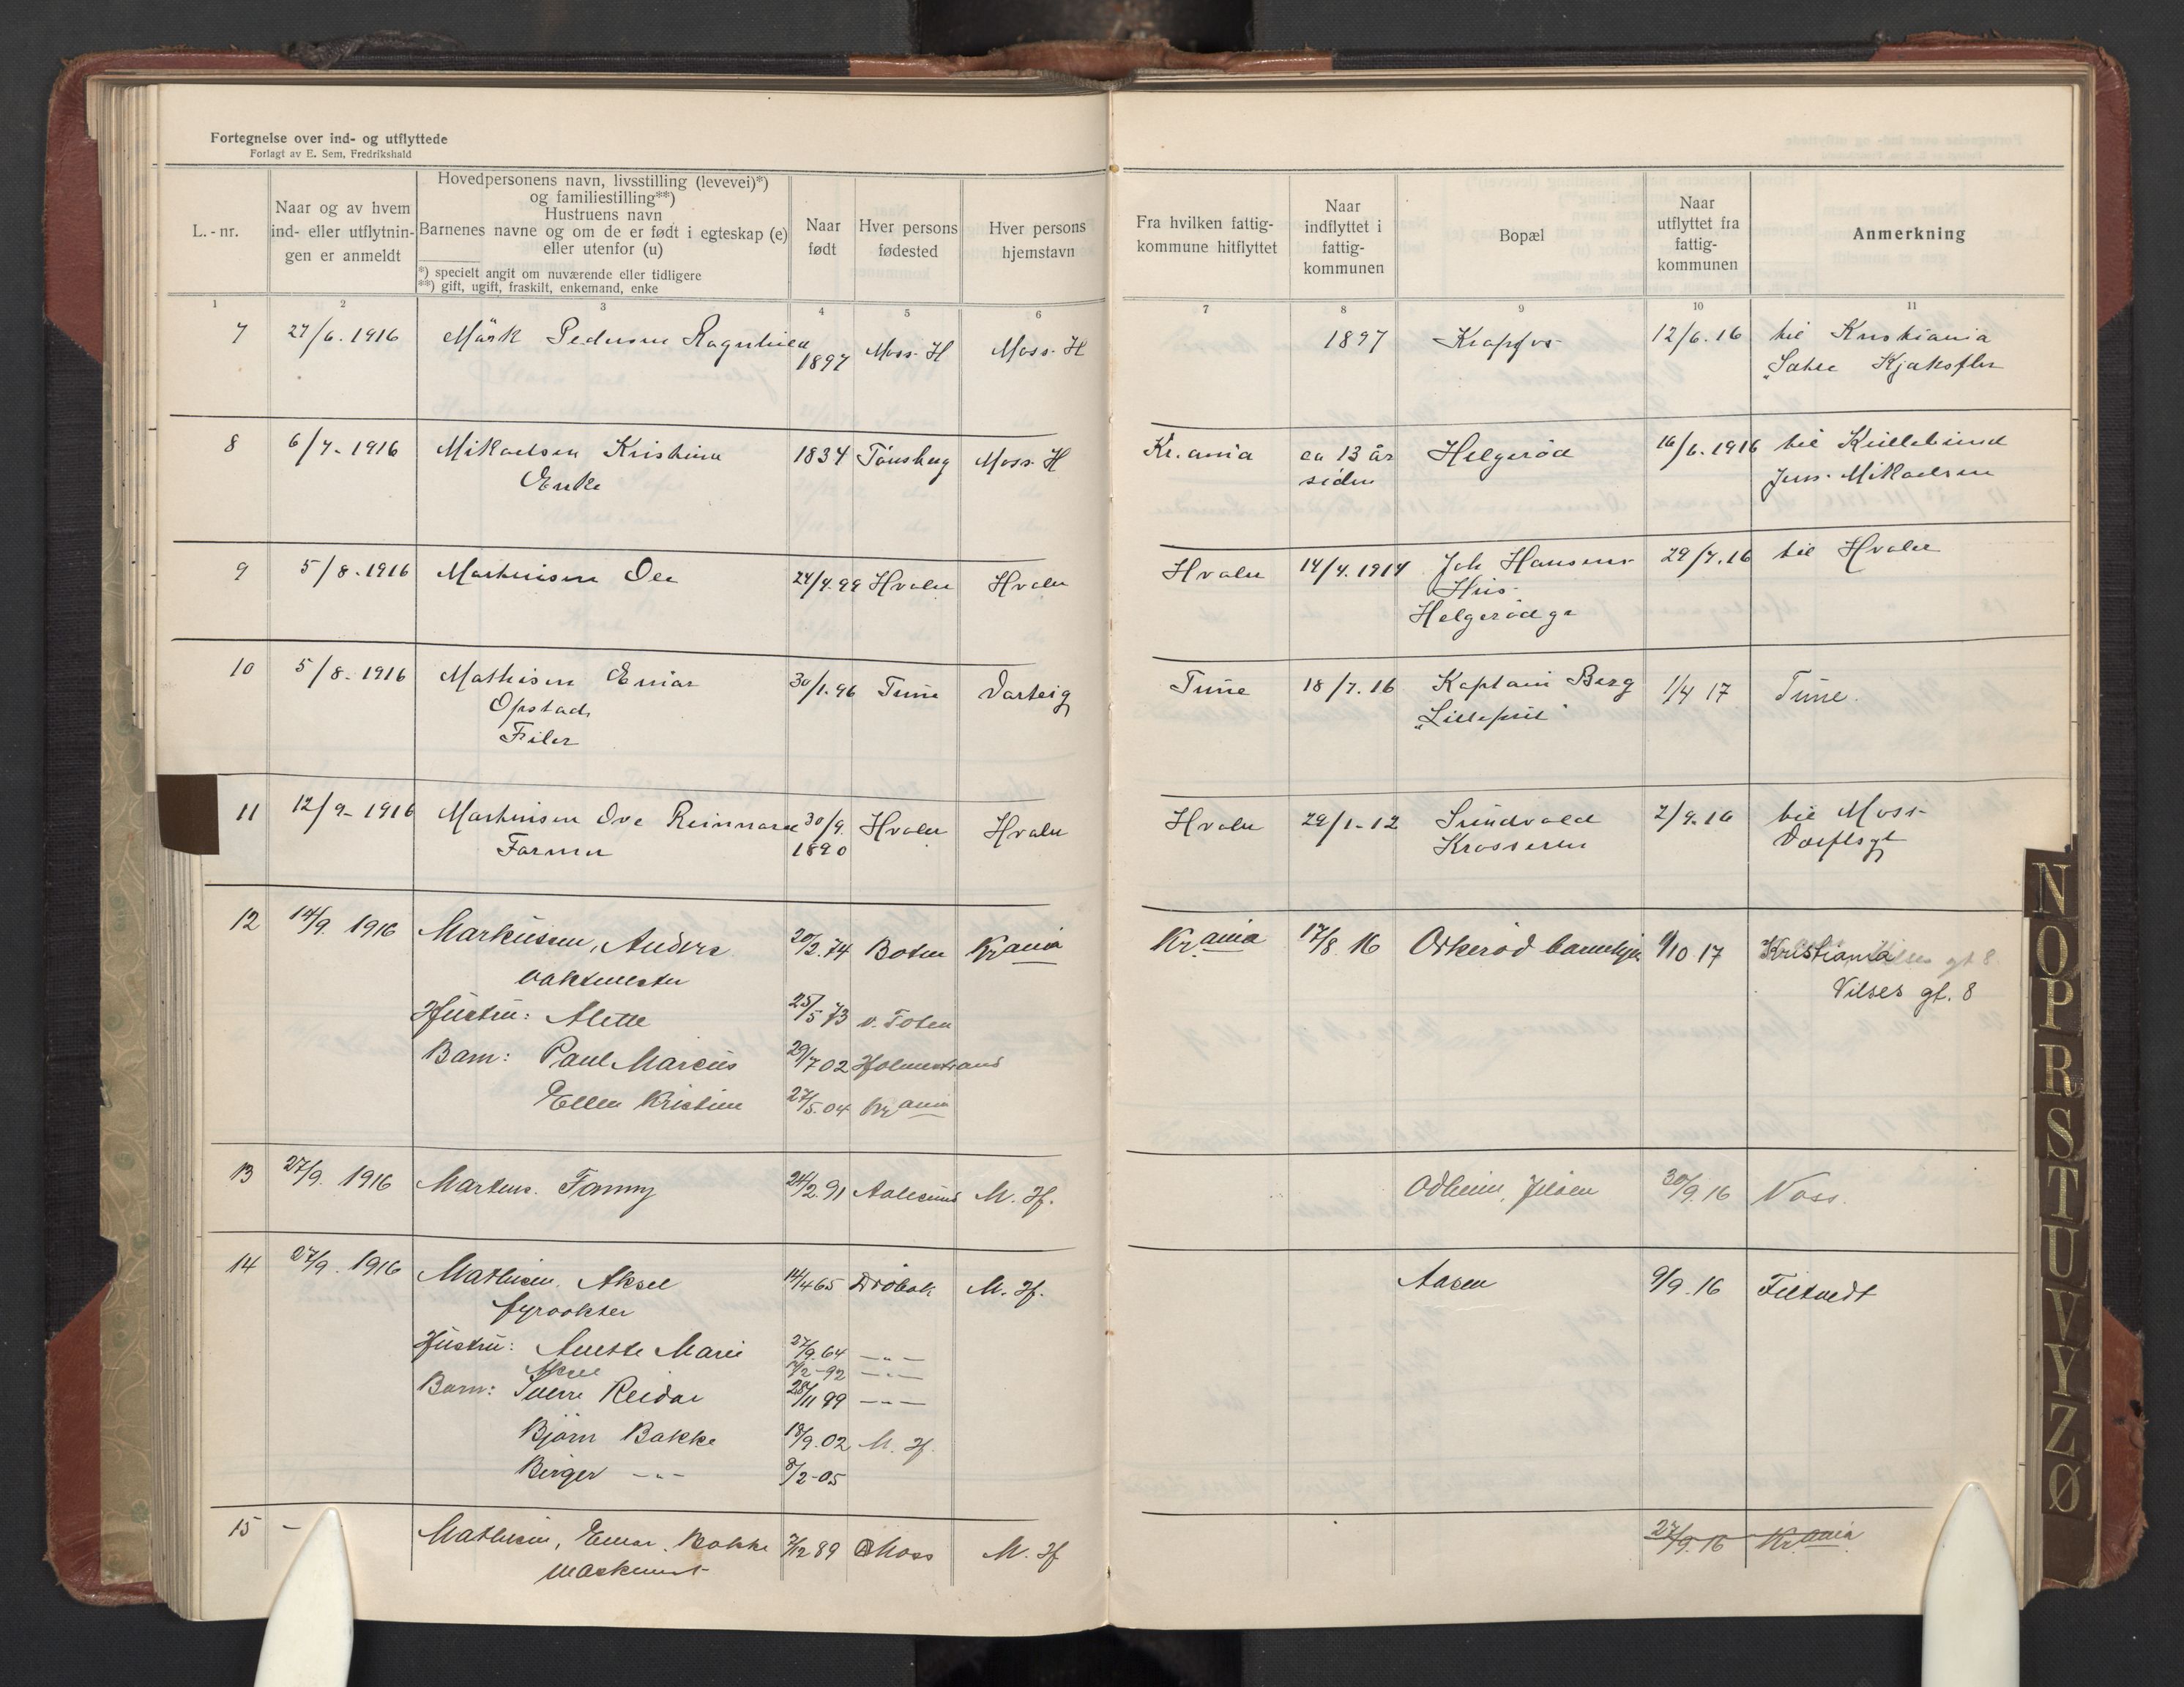 Fortegnelse over ind- og utflyttede
Forlagt av E. Sem, Fredrikshald
L.-nr.
Naar og av hvem
ind- eller utflytnin-
gen er anmeldt
Hovedpersonens navn, livsstilling (levevei)*)
og familiestilling**)
Hustruens navn
Barnenes navne og om de er født i egteskap (e)
eller utenfor (u)
*) specielt angit om nuværende eller tidligere
**) gift, ugift, fraskilt, enkemand, enke
Naar
født
Hver persons
fødested
Hver persons
hjemstavn
Fra hvilken fattig-
kommune hitflyttet
Naar
indflyttet i
fattig-
kommunen
Bopæl
Naar
utflyttet fra
fattig-
kommunen
Anmerkning
1 2 3 4 5 6 7 8 9 10 11
7 27/6. 1916 Mørk Pedersen Ragnhild 1897 Moss. H Moss. H 1897 12/6.16 til Kristiania
8 6/7. 1916 Mikaelsen Kristine 1834 Tønsberg Moss. H Kr.ania ca 13 år Helgerød 16/6.1916 til
Enke siden Jens Mikaelsen
9 5/8.1916 Martinisen Ole 24/4.99 Hvaler Hvaler Hvaler 14/4.1914 Joh Hansens 29/7.16 til Hvaler
Hus
Helgerødgt
10 5/8. 1916 Mathisen Einar 30/1.96 Tune Varteig Tune 18/7.16 Kaptain Berg 1/4 17 Tune.
Opstad, "Lilleput"
Filer
11 12/9. 1916 Martinisen Ove Reinnard 30/9. Hvaler Hvaler Hvaler 29/1-12 Sundvold 2/9.16 til Moss
Former 1890 Krosseren
12 14/9. 1916 Markussen, Anders 20/2.74 Botne Kr.ania Kr.ania 17/8 16 Orkerød barnehjem 1/10 17 Kristiania
vaktmester Vilses gt. 8
Hustru: Alette 25/5 73 v. Toten
Barn: Paul Marcus 29/7 02 Holmestrand
Ellen Kristine 27/5.04 Kr.ania
13 27/9. 1916 Martens. Fanny 24/2.91 Aalesund M. H. Odheim, Jeløen 30/9.16 Voss.
14 27/9. 1916 Mathisen. Aksel 14/4 65 Drøbak M. H. Aasen 9/9.16 Filtvedt
fyrvokter
Hustru: Anette Marie 27/9.64 -"-
Aksel 14/2-92 -"-
Barn: Sverre Reidar 28/11 99 -"-
Bjørn Bakke 18/9.02 M. H.
Birger -"- 8/2-05
15 - Mathisen, Einar. Bakke 7/12 89 Moss M. H 27/9.16 Kr.ania
maskinist
N
O
P
R
S
T
U
V
Y
Z
Ø